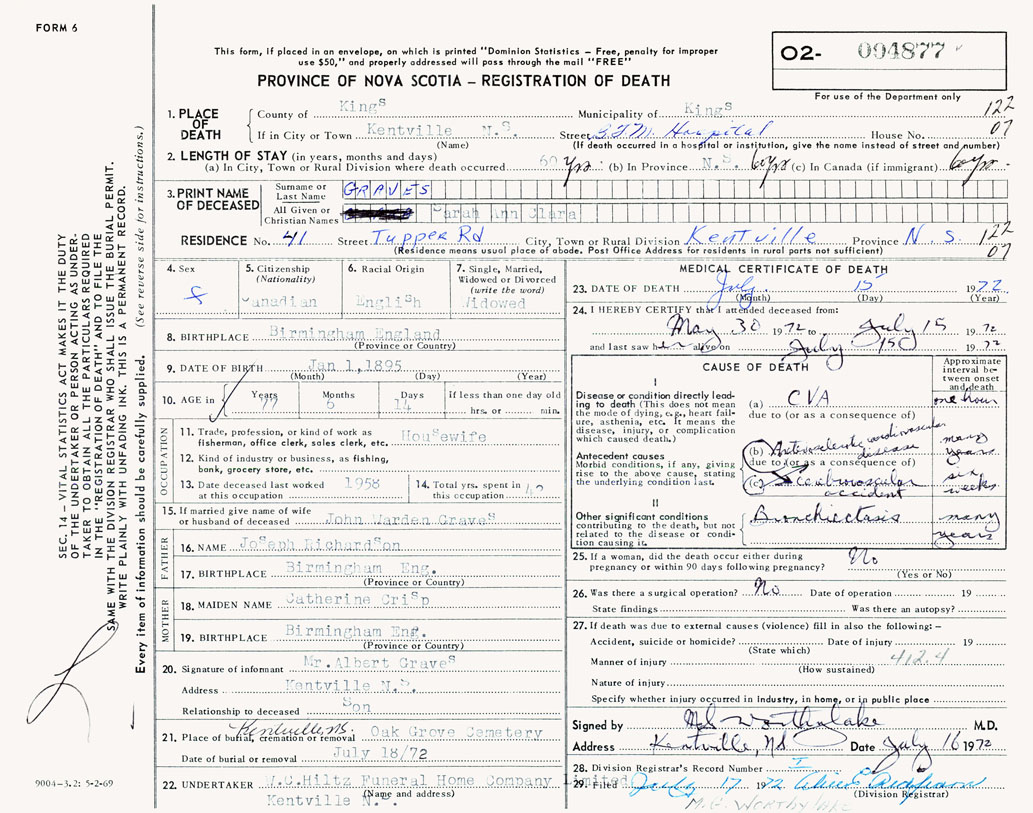 FORM 6
This form, if placed in an envelope, on which is printed "Dominion Statistics – Free, penalty for improper
use $50," and properly addressed will pass through the mail "FREE"
PROVINCE OF NOVA SCOTIA – REGISTRATION OF DEATH
02- 004877
For use of the Department only
122
07
1. PLACE OF DEATH
County of Kings Municipality of Kings
If in City or Town Kentville N.S. Street Hospital House No.
(Name) (If death occurred in a hospital or institution, give the name instead of street and number)
2. LENGTH OF STAY (in years, months and days)
(a) In City, Town or Rural Division where death occurred 60 yrs. (b) In Province N.S. 60yrs (c) In Canada (if immigrant) 60yrs.
3. PRINT NAME OF DECEASED
Surname or Last Name GRAVES
All Given or Christian Names Sarah Ann Clara
RESIDENCE No. 41 Street Tupper Rd City, Town or Rural Division Kentville Province N.S.
(Residence means usual place of abode. Post Office Address for residents in rural parts not sufficient)
122
07
4. Sex f
5. Citizenship (Nationality) Canadian
6. Racial Origin English
7. Single, Married, Widowed or Divorced (write the word) Widowed
8. BIRTHPLACE Birmingham England
(Province or Country)
9. DATE OF BIRTH Jan 1,1895
(Month) (Day) (Year)
10. AGE in Years 77 Months 6 Days 14 If less than one day old hrs. or min.
OCCUPATION
11. Trade, profession, or kind of work as
fisherman, office clerk, sales clerk, etc. Housewife
12. Kind of industry or business, as fishing,
bank, grocery store, etc.
13. Date deceased last worked
at this occupation 1958
14. Total yrs. spent in
this occupation 42
15. If married give name of wife
or husband of deceased John Warden Graves
FATHER
16. NAME Joseph Richardson
17. BIRTHPLACE Birmingham Eng.
(Province or Country)
MOTHER
18. MAIDEN NAME Catherine Crisp
19. BIRTHPLACE Birmingham Eng.
(Province or Country)
20. Signature of informant Mr. Albert Graves
Address Kentville N.S.
Relationship to deceased Son
21. Place of burial, cremation or removal Kentville NS. Oak Grove Cemetery
Date of burial or removal July 18/72
22. UNDERTAKER W.C.Hiltz Funeral Home Company limited
(Name and address)
Kentville N.S.
MEDICAL CERTIFICATE OF DEATH
23. DATE OF DEATH July 15 1972
(Month) (Day) (Year)
24. I HEREBY CERTIFY that I attended deceased from:
May 30 1972 to July 15 1972
and last saw her alive on July 15 1972
CAUSE OF DEATH
Approximate interval between onset and death
I
Disease or condition directly lead-
ing to death (This does not mean
the mode of dying, e.g., heart fail-
ure, asthenia, etc. It means the
disease, injury, or complication
which caused death.)
(a) CVA one hour
due to (or as a consequence of)
Antecedent causes
Morbid conditions, if any, giving
rise to the above cause, stating
the underlying condition last.
(b) cardiovascular disease many years
due to (or as a consequence of)
(c) Cerebrovascular accident six weeks
II
Other significant conditions
contributing to the death, but not
related to the disease or condi-
tion causing it.
Bronchiectasis many years
25. If a woman, did the death occur either during
pregnancy or within 90 days following pregnancy? No
(Yes or No)
26. Was there a surgical operation? No. Date of operation 19
State findings Was there an autopsy?
27. If death was due to external causes (violence) fill in also the following: –
Accident, suicide or homicide? Date of injury 19
(State which)
Manner of injury 412.4
(How sustained)
Nature of injury
Specify whether injury occurred in industry, in home, or in public place
Signed by M.D.
Address Kentville, NS Date July 16 1972
28. Division Registrar's Record Number I
29. Filed July 17 1972
(Division Registrar)
M.G. Worthylake
SEC. 14 – VITAL STATISTICS ACT MAKES IT THE DUTY
OF THE UNDERTAKER OR PERSON ACTING AS UNDER-
TAKER TO OBTAIN ALL THE PARTICULARS REQUIRED
IN THE "REGISTRATION OF DEATH" AND FILE THE
SAME WITH THE DIVISION REGISTRAR WHO SHALL ISSUE THE BURIAL PERMIT.
WRITE PLAINLY WITH UNFADING INK. THIS IS A PERMANENT RECORD.
Every item of information should be carefully supplied. (See reverse side for instructions.)
9004–3.2: 5-2-69